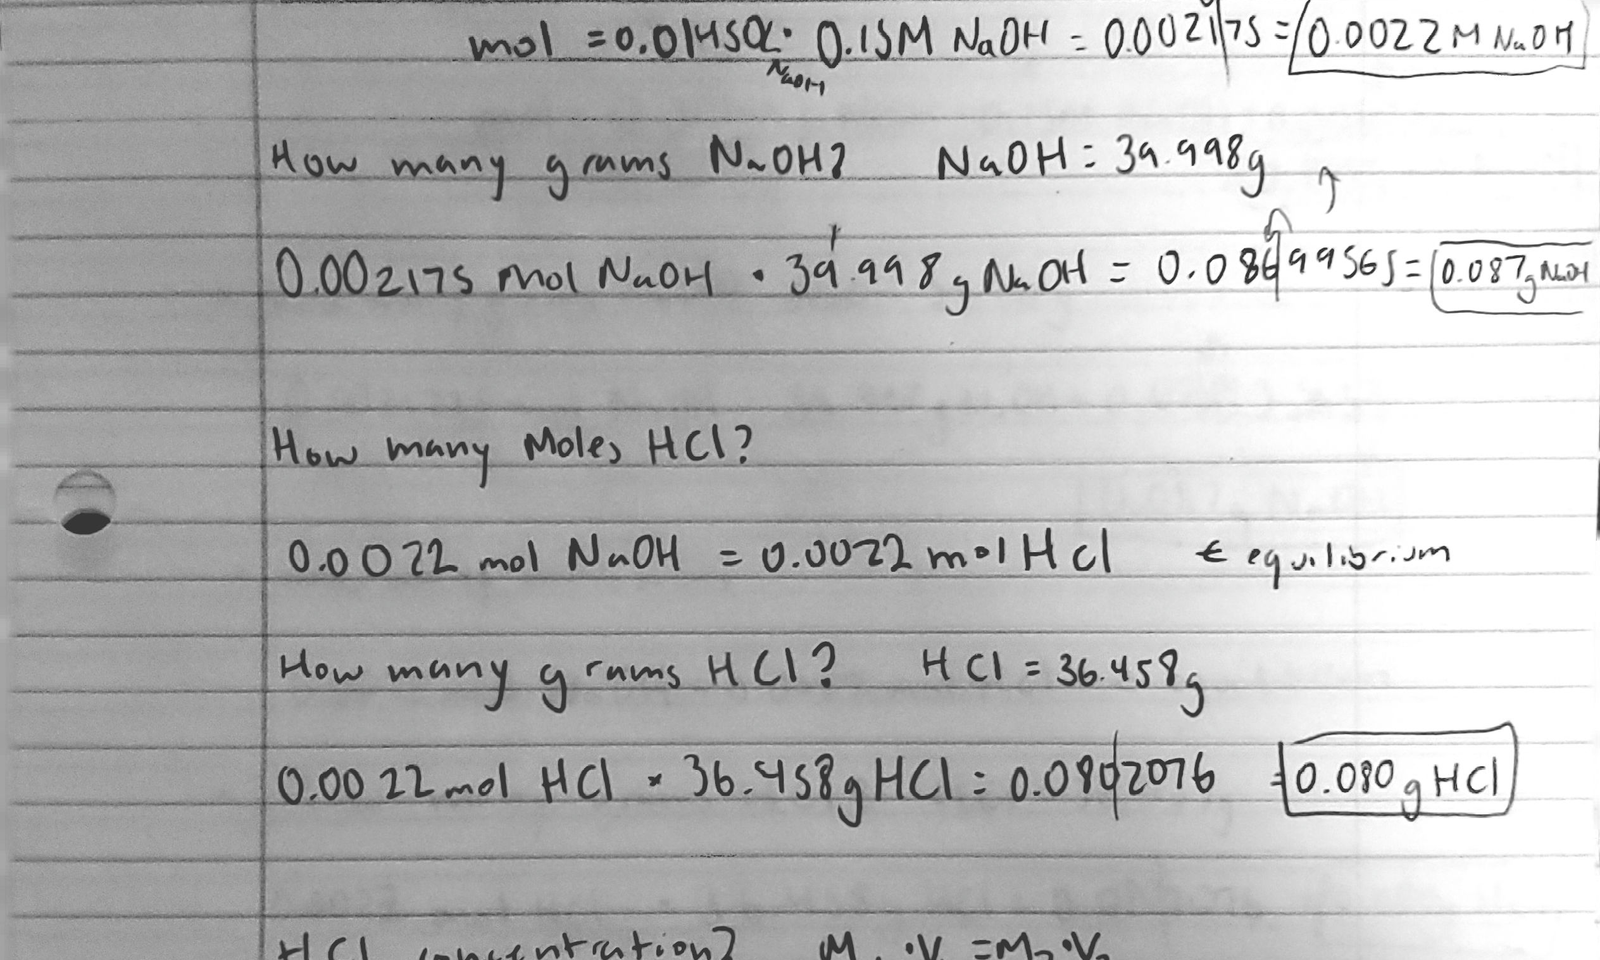 mol = 0.01450L · 0.15M NaOH = 0.002175 = 0.0022 M NaOH
NaOH
How many grams NaOH? NaOH = 39.998g
0.002175 mol NaOH · 39.998g NaOH = 0.08699565 = 0.087g NaOH
How many Moles HCl?
0.0022 mol NaOH = 0.0022 mol HCl ← equilibrium
How many grams HCl? HCl = 36.458g
0.0022 mol HCl · 36.458g HCl = 0.0802076 = 0.080g HCl
HCl concentration? M₁·V₁=M₂·V₂